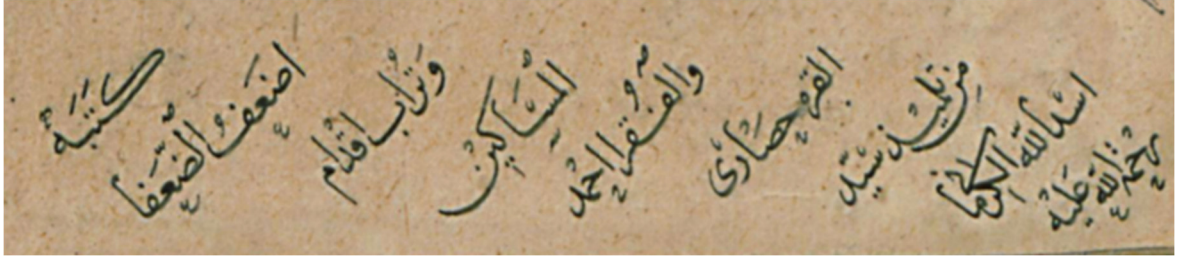 كَتَبَهُ
اضعَفُ الضُّعَفا
وَتُرَاب اقدام
المسَاكين
والفُقَرا احمد
القره حِصَارى
مِن تلميذ سَيّد
اسد الله الكرمانى
رَحمة الله عَليْه